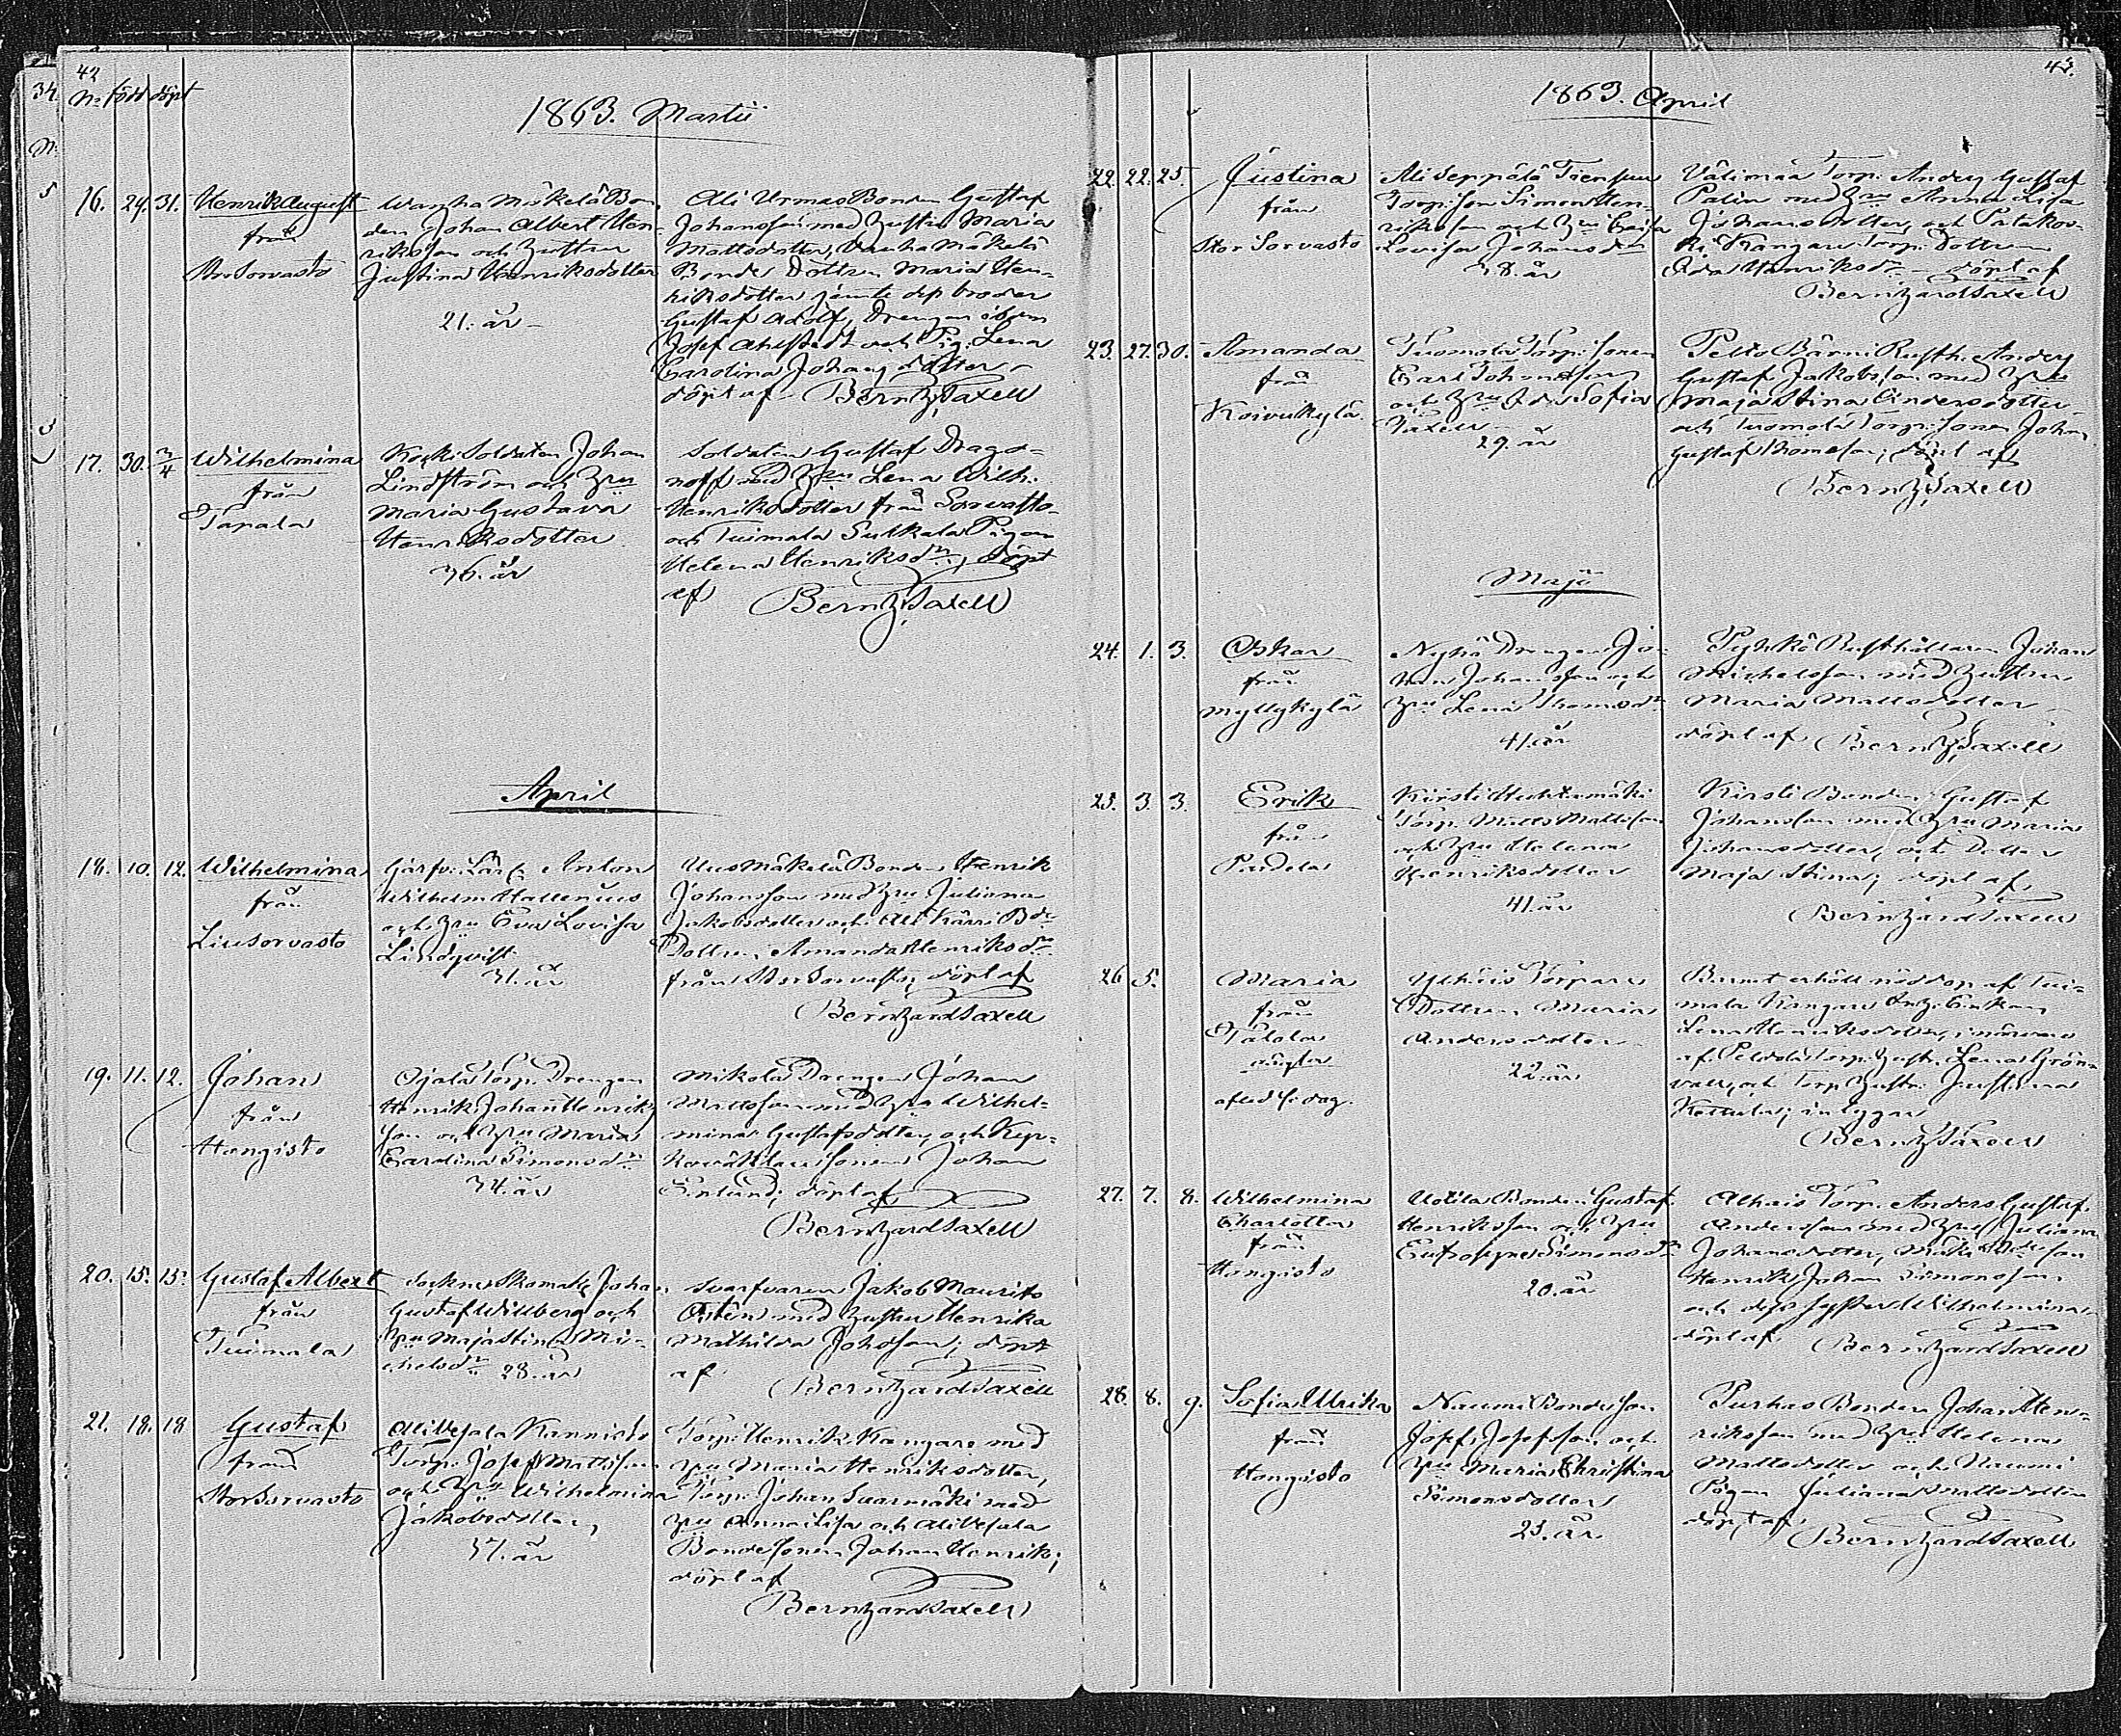 42
N:o född döpt
1863. Martii
16. 29. 31. Henrik August
från
Stor Sorvasto
Wanha Mäkelä Bon-
den Johan Albert Hen-
riksson och Hustrun
Justina Henriksdotter
21. år
Ali Urmas Bonden Gustaf
Johansson med Hustru Maria
Mattsdotter, Vanha Mäkelä
Bonde Dottren Maria Hen-
riksdotter jämte dess broder
Gustaf Adolf, Drengen
Josef Ahlstedt och Pig. Lena
Carolina Johansdotter
döpt af Bernh. Saxell
17. 30. 2/4 Wilhelmina
från
Tapala
Koski Soldaten Johan
Lindström och Hru
Maria Gustava
Henriksdotter
36. år
Soldaten Gustaf Drago-
noff med Hru Lena Wilh.
Henriksdotter från Sorvasto
och Tuimala Sulkala Pigan
Helena Henriksdr; döpt
af Bernh. Saxell
April
18. 10. 12. Wilhelmina
från
Liusorvasto
Garfv: Lärl. Anton
Wilhelm Hallenius
och Hru Eva Lovisa
Lindqvist
31. år
Uus Mäkelä Bonden Henrik
Johansson med Hru Juliana
Jakobsdotter och Ali Kärri Bde
Dottren Amanda Henriksdr
från Stor Sorvasto; döpt af
Bernhard Saxell
19. 11. 12. Johan
från
Hongisto
Ojala Torp. Drengen
Henrik Johan Henriks-
son och Hru Maria
Carolina Simonsdr
34. år
Mikola Drengen Johan
Mattsson med Hru Wilhel-
mina Gustafsdotter, och
sonen Johan
döpt af
Bernhard Saxell
20. 15. 15. Gustaf Albert
från
Tuimala
Sockne Skomak. Johan
Gustaf Willberg och
Hru Maja Stina Mi-
chelsdr 28. år
Svarfvaren Jakob Maurits
Östen med Hustru Henrika
Mathilda Johdsson; döpt
af
Bernhard Saxell
21. 18. 18 Gustaf
från
Stor Sorvasto
Ali Vesala Kannisto
Torp: Josef Mattsson
och Hru Wilhelmina
Jakobsdotter
37. år
Torp: Henrik Kangare med
Hru Maria Henriksdotter,
Torp: Johan Suarmäki med
Hru Anna Lisa och Ali Vesala
Bonde Sonen Johan Henrik;
döpt af
Bernhard Saxell
43.
1863. April
22. 22. 25. Justina
från
Stor Sorvasto
Ali Seppälä
Torp: Son Simon Hen-
riksson och Hru Caisa
Lovisa Johansdr
38. år
Välimaa Torp: Anders Gustaf
Palin med Hru Anna Lisa
Johansdotter, och
Kangare Torp: Dottren
Ida Henriksdr döpt af
Bernhard Saxell
23. 27. 30. Amanda
från
Koivukylä
Tuomola Torp: Sonen
Carl Johansson
och Hru Ida Sofia
Saxell
29. år
Pelto Bärni Rusth. Anders
Gustaf Jakobsson med Hru
Maja Stina Andersdotter
och Tuomola Torp: Sonen Johan
Gustaf Thomsson; döpt af
Bernh. Saxell
Maji
24. 1. 3. Oskar
från
Myllykylä
Drengen Jo-
han Johansson och
Hru Lena Thomsdr
41. år
Rusthållaren Johan
Michelsson med Hustru
Maria Mattsdotter
döpt af Bernh. Saxell
25. 3. 3. Erik
från
Kirsti Huhtamäki
Torp. Matts Mattsson
och Hru Helena
Henriksdotter
41. år
Kirsti Bonden Gustaf
Johansson med Hru Maria
Johansdotter, och Dotter
Maja Stina; döpt af
Bernhard Saxell
26 5. Maria
från
oägta
Torpare
Dottren Maria
Andersdotter
22. år
Barnet erhöll nöddop af Tui-
mala Kangare Enkan
Lena Henriksdotter, i närvaro
af Torp. Hustr. Lena Grön-
vall, och Torp. Hustr. Justina
intygar
Bernh. Saxell
27. 7. 8. Wilhelmina
Charlotta
från
Hongisto
Uotila Bonden Gustaf
Henriksson och Hru
Eufrosyne Simonsdr
20. år
Torp. Anders Gustaf
Andersson med Hru Juliana
Johansdotter,
Henrik Johan Simonsson
och dess syster Wilhelmina
döpt af Bernhard Saxell
28. 8. 9. Sofia Ulrika
från
Hongisto
Naumi Bonde Son
Josef Josefsson och
Hru Maria Christina
Simonsdotter
23. år
Purhas Bonden Johan Hen-
riksson med Hru Helena
Mattsdotter och Naumi
Pigan Juliana Mattsdotter
döpt af
Bernhard Saxell